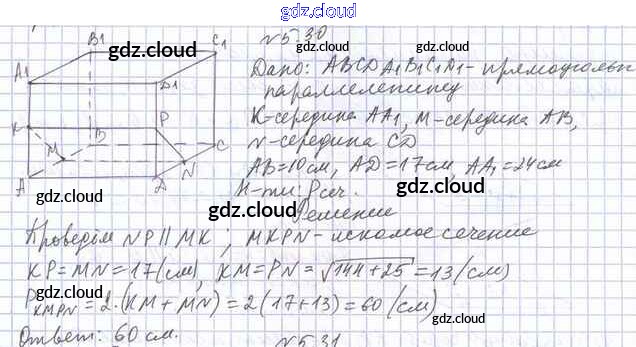 gdz.cloud
№5.30
B1 gdz.cloud C1
Дано: ABCDA1B1C1D1 - прямоугольн
A1 D1 gdz.cloud
параллелепипед
K-середина AA1, M-середина AB,
K P
gdz.cloud B gdz.cloud
N-середина CD
M C
AB=10см, AD=17см, AA1=24см
A D N
gdz.cloud gdz.cloud
Н-ти: Pсеч.
Решение
Проведём NP||MK; MKPN-искомое сечение
KP=MN=17(см), KM=PN=√144+25=13(см)
gdz.cloud gdz.cloud
PKMPN=2·(KM+MN)=2(17+13)=60(см)
gdz.cloud gdz.cloud
Ответ: 60 см.
№5.31